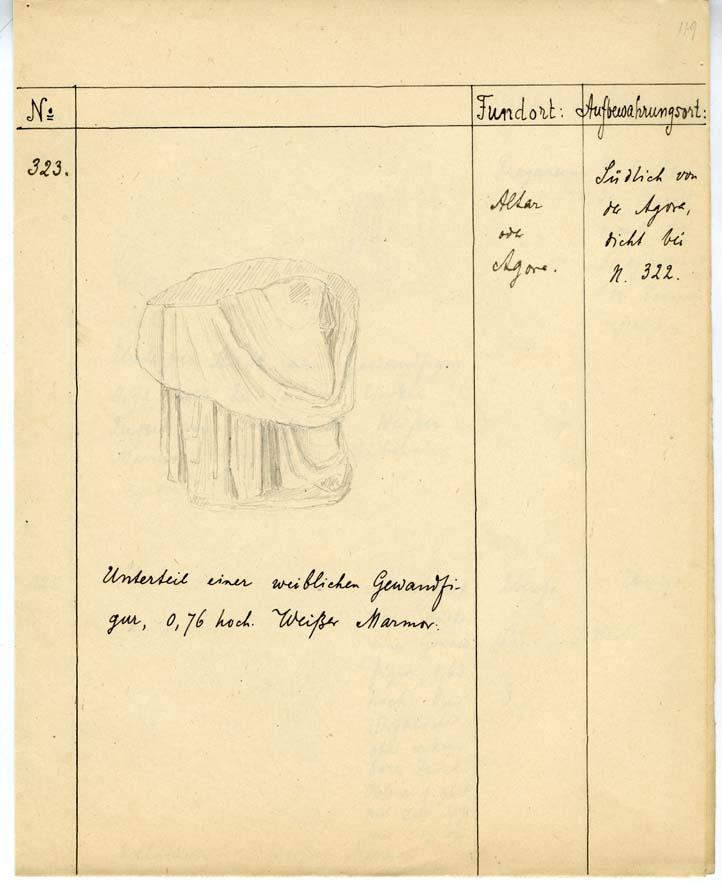 119
No Fundort: Aufbewahrungsort:
323.
Altar
oder
Agora.
Südlich von
der Agora,
dicht bei
N. 322.
Unterteil einer weiblichen Gewandfi-
gur, 0,76 hoch. Weißer Marmor.